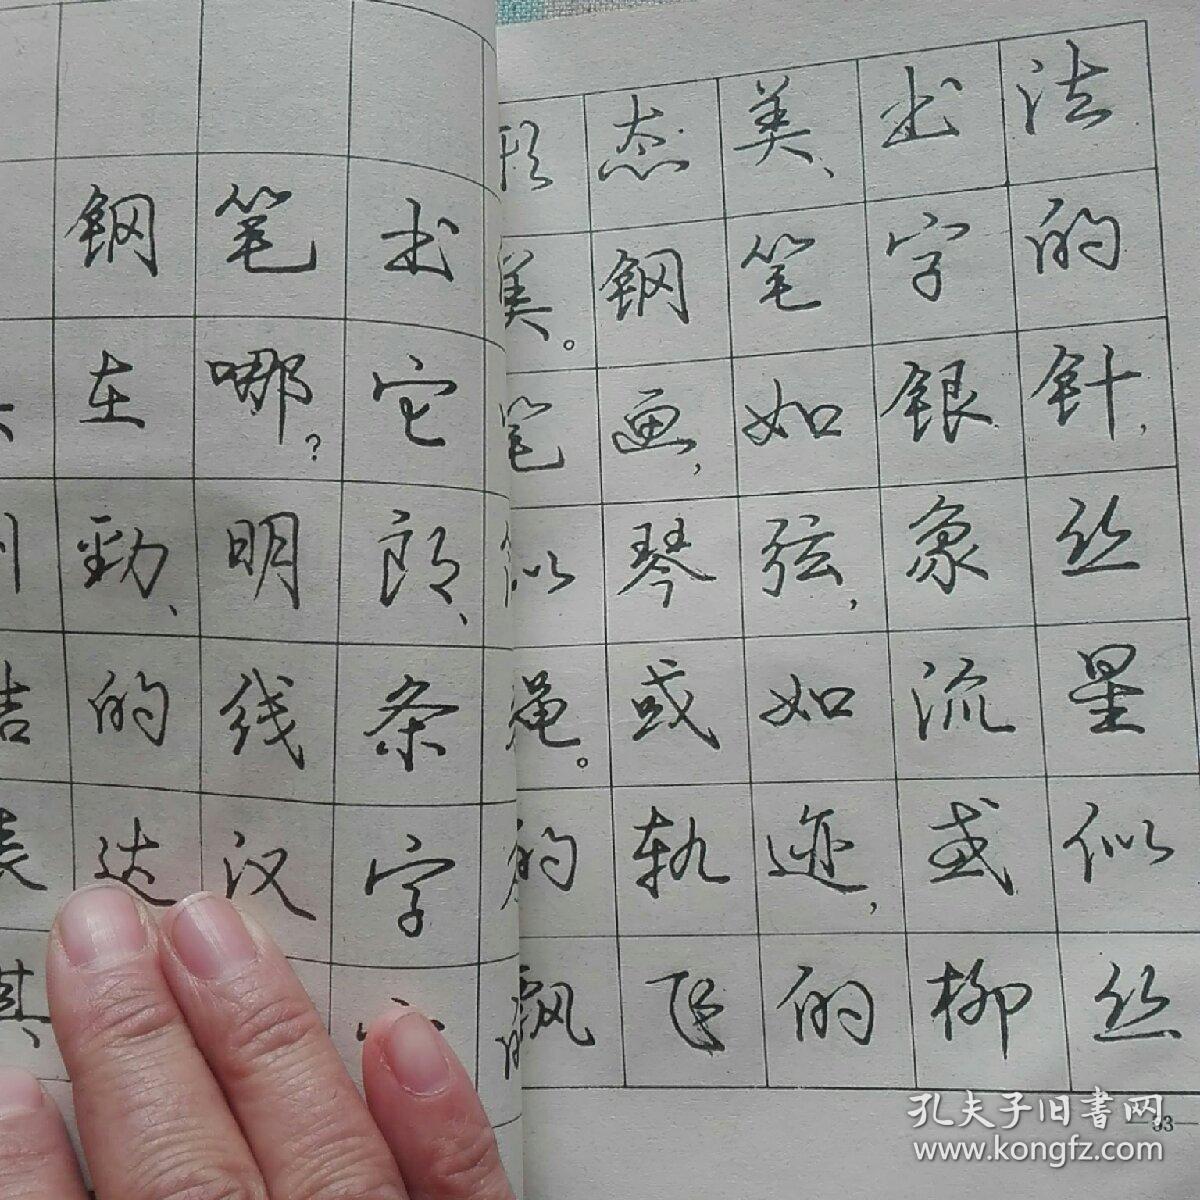 钢笔书
在哪?它
劲、明朗、
的线条
达汉字
形态美、书法
美。钢笔字的
笔画,如银针,
似琴弦,象丝
绳。或如流星
的轨迹,或似
飘飞的柳丝
93
孔夫子旧書网
www.kongfz.com